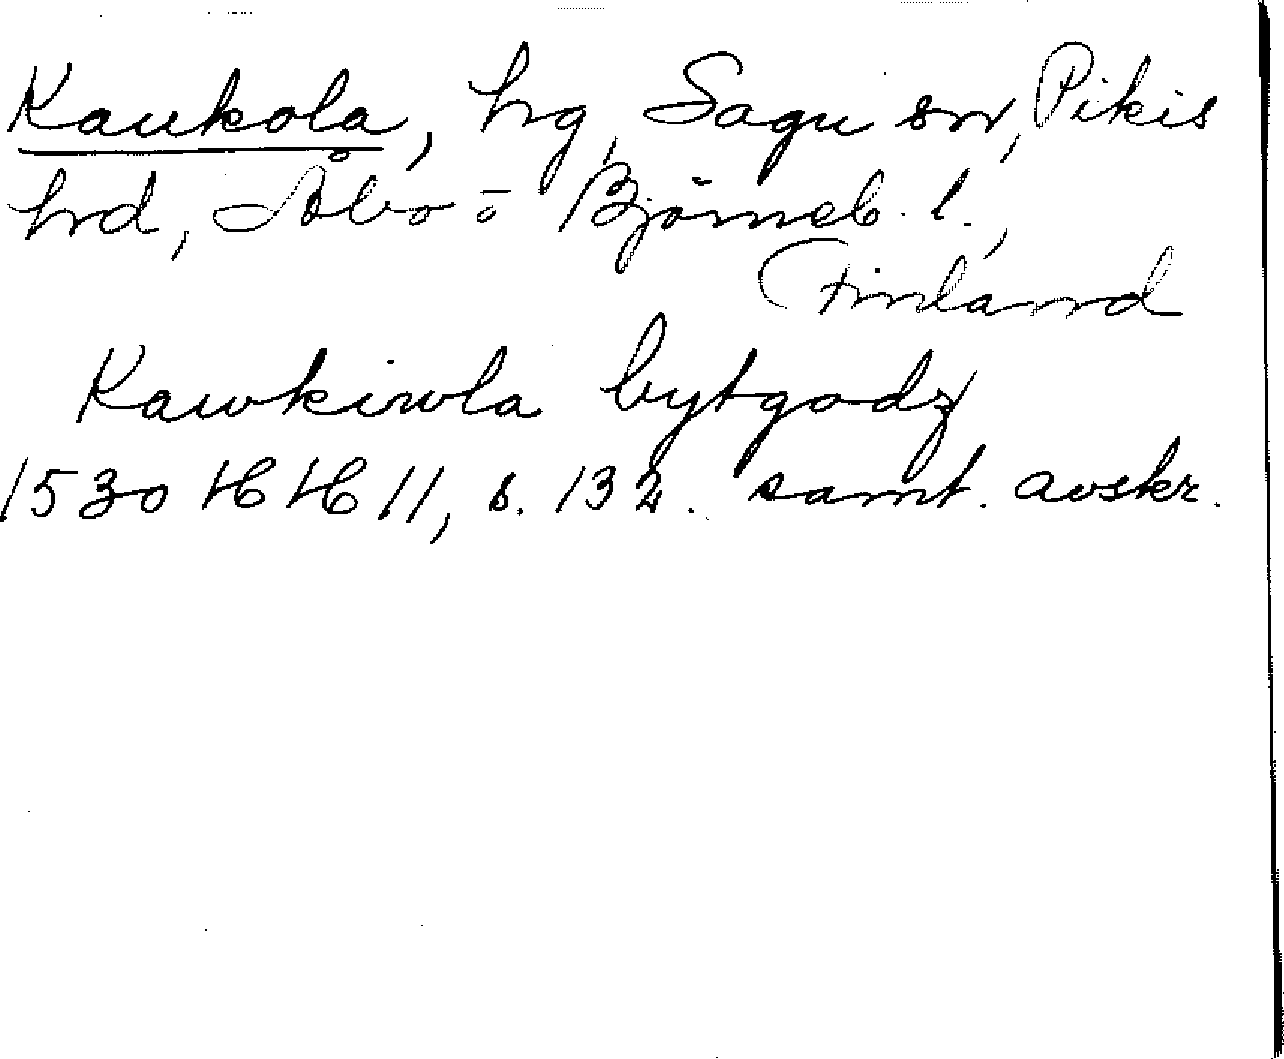 Kaukola, hg, Sagu sn, Pikis
hrd, Åbo o Björneb. l.,
Finland
Kawkiwla bytgodz
1530 HH 11, s. 132. samt. avskr.